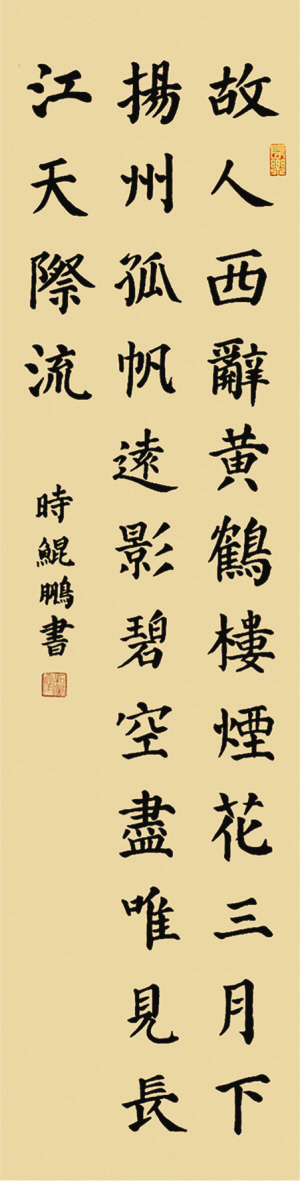 故人西辭黃鶴樓煙花三月下
揚州孤帆遠影碧空盡唯見長
江天際流
時鯤鵬書